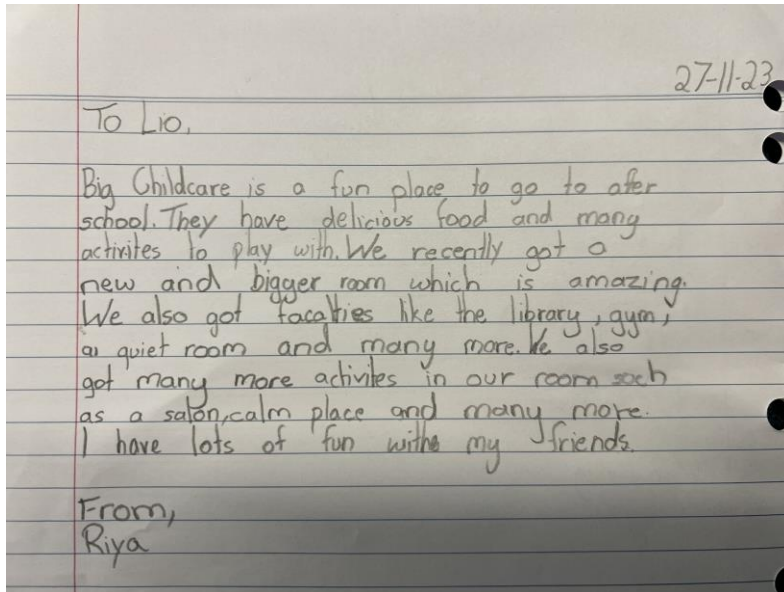 27-11-23
To Lio,
Big Childcare is a fun place to go to afer
school. They have delicious food and many
activites to play with. We recently got a
new and bigger room which is amazing.
We also got facalties like the library, gym,
a quiet room and many more. We also
got many more activites in our room such
as a salon, calm place and many more.
I have lots of fun withe my friends.
From,
Riya